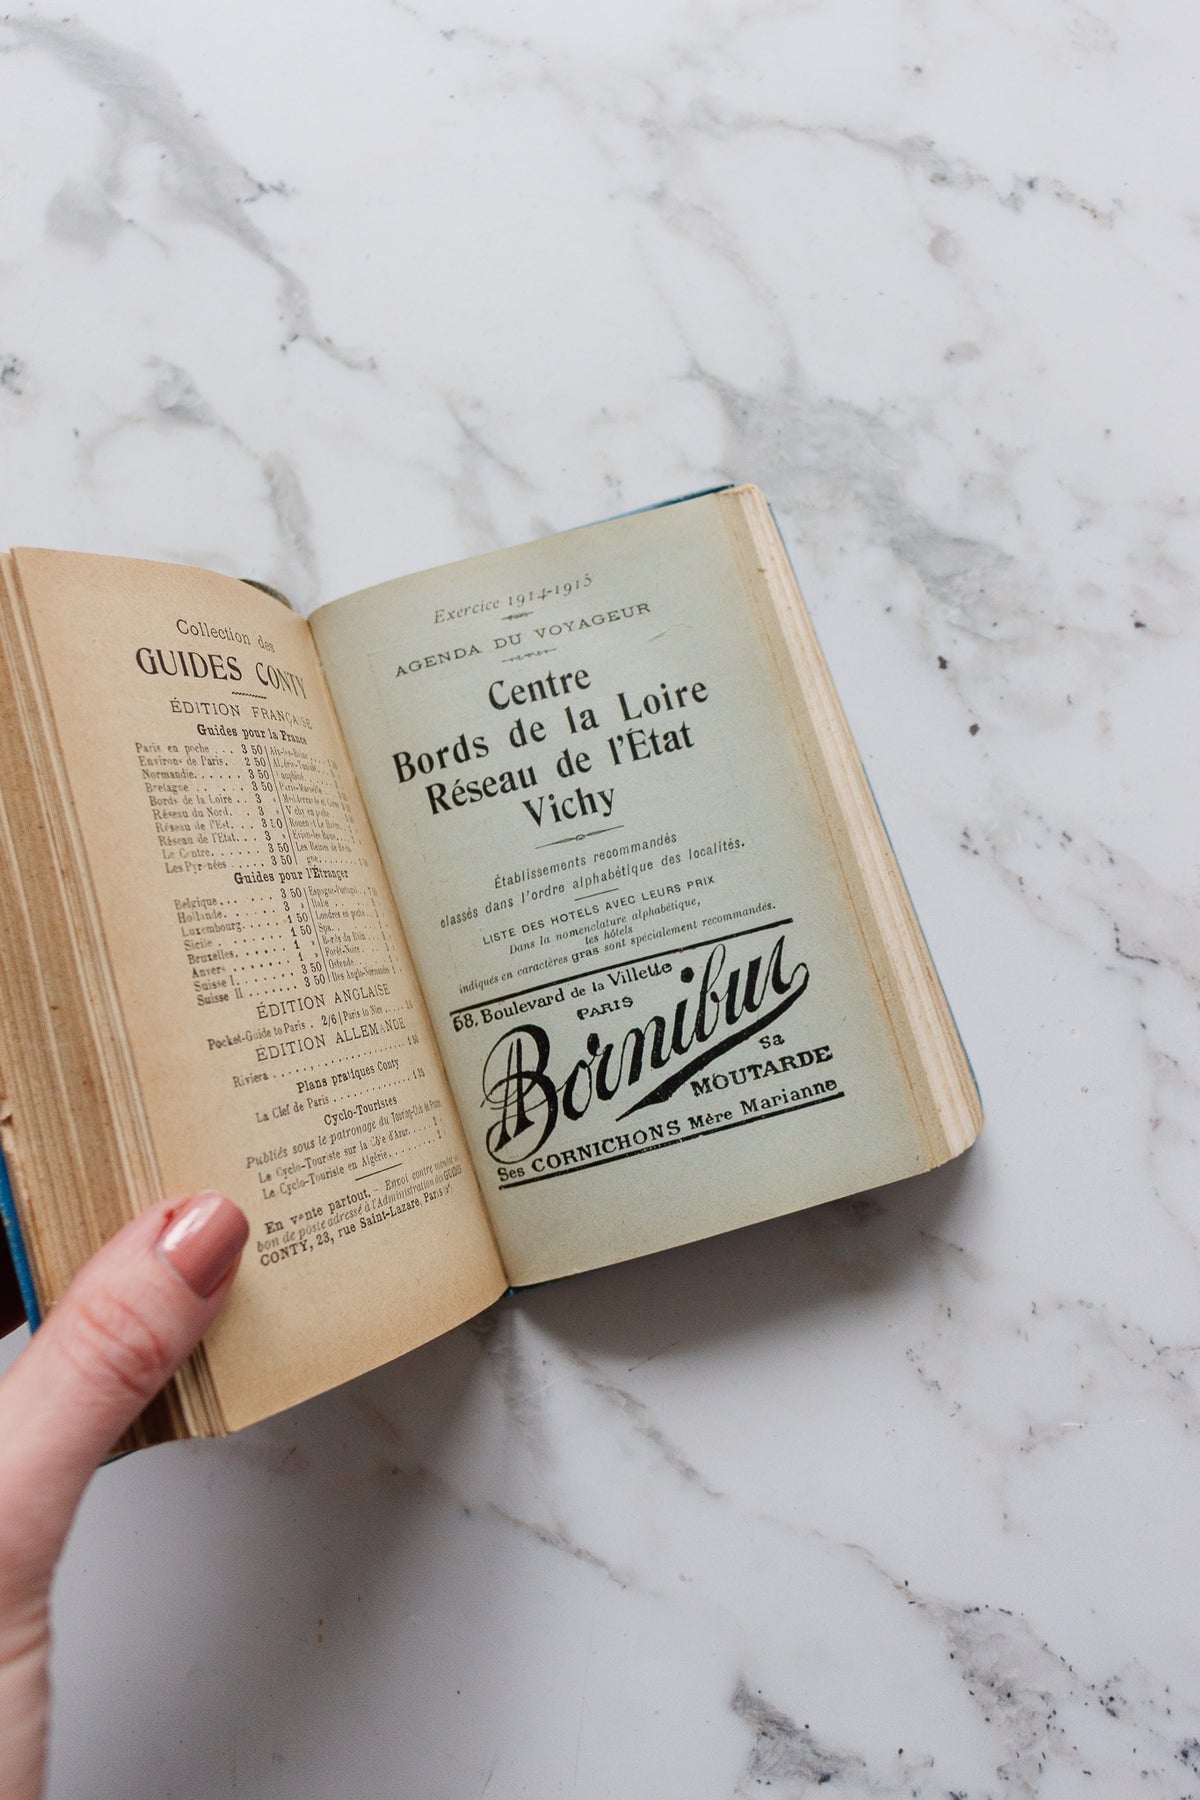 Collection des
GUIDES CONTY
ÉDITION FRANÇAISE
Guides pour la France
Paris en poche . . . 3 50
Environs de Paris. . 2 50
Normandie. . . . . 3 50
Bretagne . . . . . 3 50
Bords de la Loire . . 3 »
Réseau du Nord. . . 3 »
Réseau de l'Est. . . 3 50
Réseau de l'Etat. . . 3 »
Le Centre. . . . . 3 50
Les Pyrénées . . . . 3 50
Guides pour l'Étranger
Belgique . . . . 3 50 | Espagne-Portugal
Hollande. . . . . 3 » | Italie
Luxembourg. . . . 1 50 | Londres en poche
Sicile . . . . . 1 50 | Spa
Bruxelles. . . . . 1 » | Bords du Rhin
Anvers . . . . . 1 » | Forêt-Noire
Suisse I. . . . . 3 50 | Ostende
Suisse II . . . . 3 50 | Iles Anglo-Normandes
ÉDITION ANGLAISE
Pocket-Guide to Paris . 2/6 | Paris to Nice
ÉDITION ALLEMANDE
Riviera . . . . . . . . 1 50
Plans pratiques Conty
La Clef de Paris . . . . . . . . 1.25
Cyclo-Touristes
Publiés sous le patronage du Touring-Club de France
Le Cyclo-Touriste sur la Côte d'Azur
Le Cyclo-Touriste en Algérie
En vente partout. — Envoi contre mandat ou
bon de poste adressé à l'Administration des GUIDES
CONTY, 23, rue Saint-Lazare, Paris
Exercice 1914-1915
AGENDA DU VOYAGEUR
Centre
Bords de la Loire
Réseau de l'État
Vichy
Établissements recommandés
classés dans l'ordre alphabétique des localités.
LISTE DES HOTELS AVEC LEURS PRIX
Dans la nomenclature alphabétique,
les hôtels
indiqués en caractères gras sont spécialement recommandés.
58, Boulevard de la Villette
PARIS
Bornibus
Sa
MOUTARDE
Ses CORNICHONS Mère Marianne